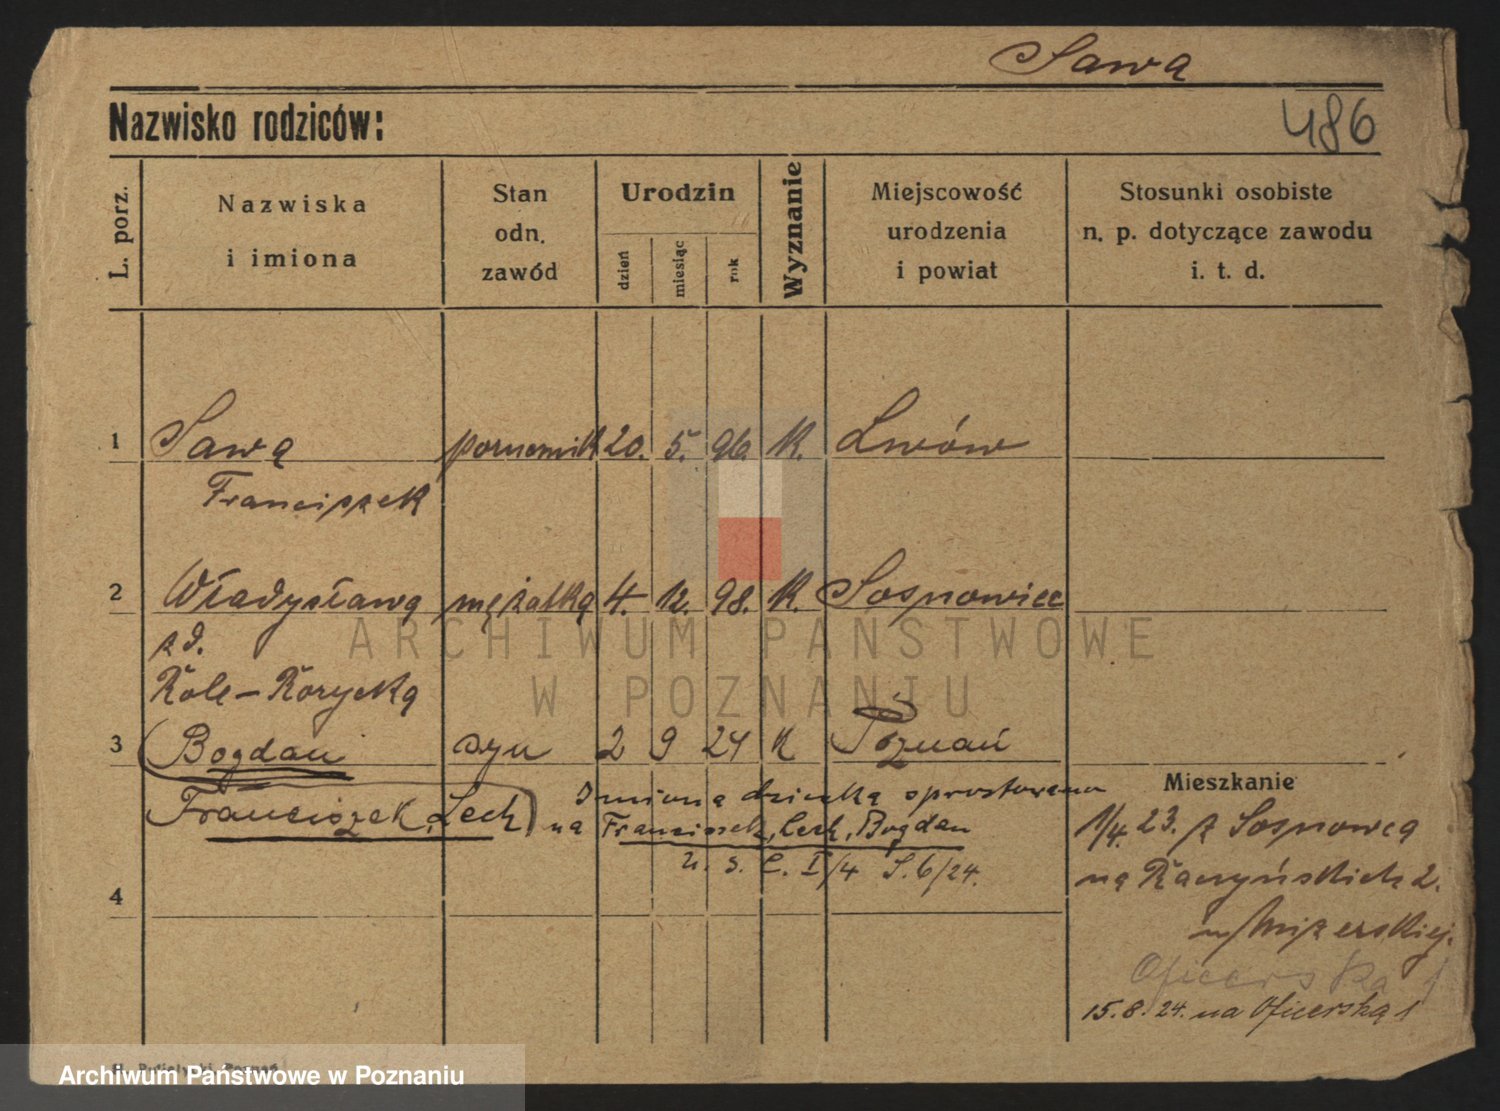 Sawa
Nazwisko rodziców:
486
L. porz.
Nazwiska
i imiona
Stan
odn.
zawód
Urodzin
dzień
miesiąc
rok
Wyznanie
Miejscowość
urodzenia
i powiat
Stosunki osobiste
n. p. dotyczące zawodu
i. t. d.
1 Sawa porucznik 20. 5. 96. K. Lwów
Franciszek
2 Władysława mężatka 4. 12. 98. K. Sosnowiec
z d.
Role-Różycka
3 Bogdan syn 2 9 24 K Poznań
Franciszek, Lech
Imiona dziecka sprostowano
na Franciszek, Lech, Bogdan
U. S. C. I/4 S. 6/24.
4
Mieszkanie
1/4. 23. z Sosnowca
na Raczyńskich 2.
u/Mizerskiej.
Oficerska 1
15. 8. 24. na Oficerską 1
ARCHIWUM PAŃSTWOWE
W POZNANIU
Archiwum Państwowe w Poznaniu